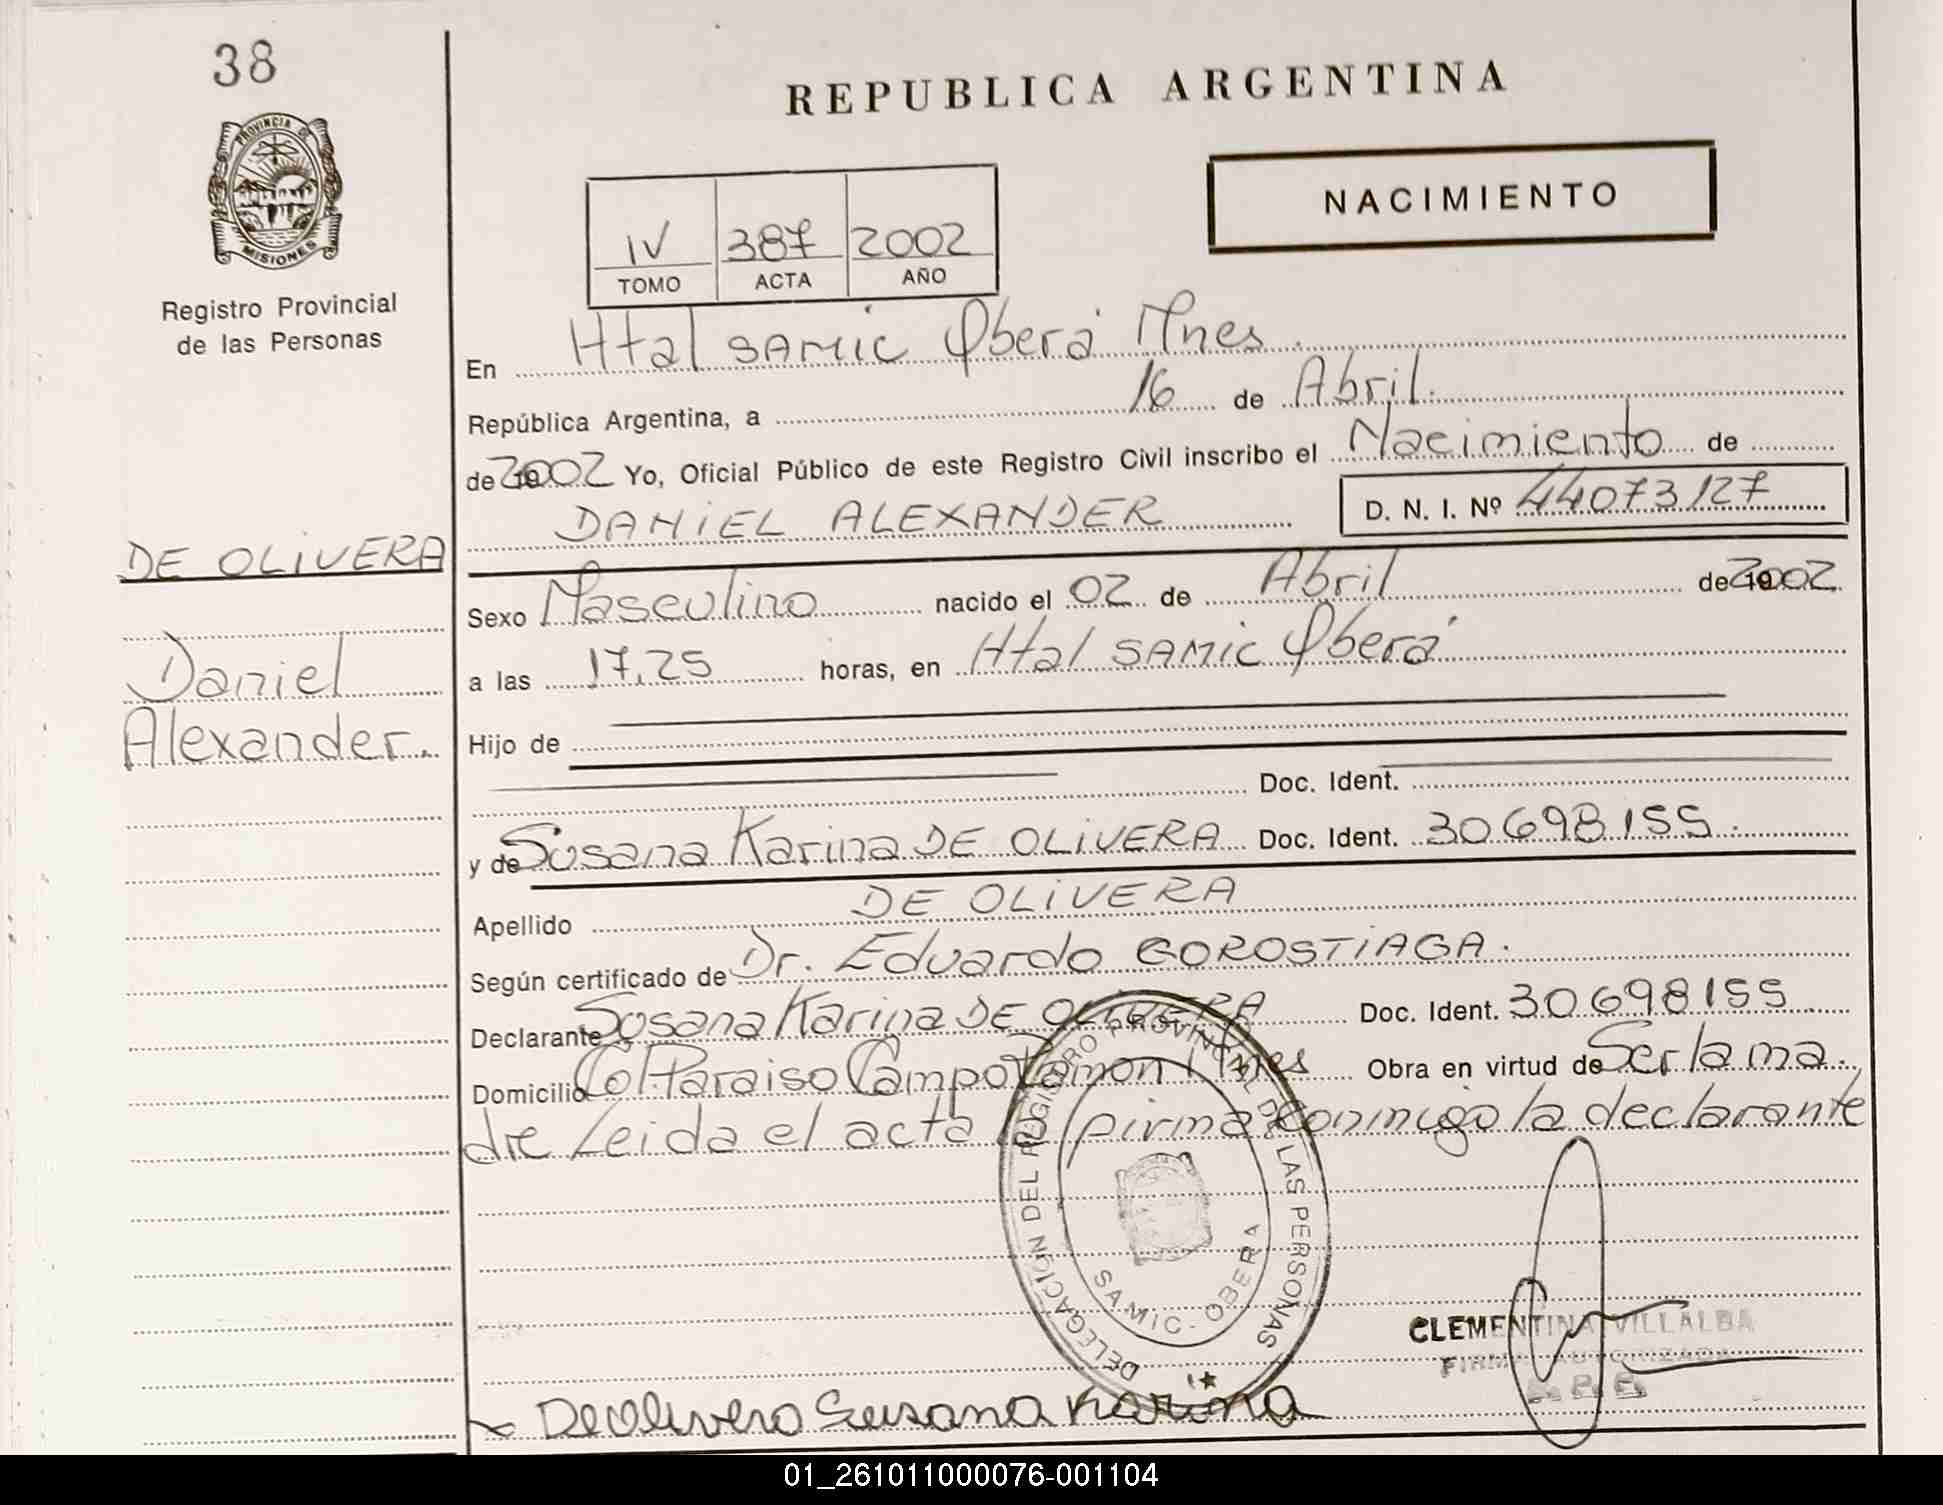 38
REPUBLICA ARGENTINA
PROVINCIA DE
MISIONES
Registro Provincial
de las Personas
NACIMIENTO
IV 387 2002
TOMO ACTA AÑO
En Htal SAMIC Oberá Mnes.
República Argentina, a 16 de Abril.
de 2002 Yo, Oficial Público de este Registro Civil inscribo el Nacimiento de
DANIEL ALEXANDER D. N. I. Nº 44073127
DE OLIVERA
Daniel
Alexander.
Sexo Masculino nacido el 02 de Abril de 2002.
a las 17,25 horas, en Htal SAMIC Oberá
Hijo de
Doc. Ident.
y de Susana Karina DE OLIVERA Doc. Ident. 30698155.
Apellido DE OLIVERA
Según certificado de Dr. Eduardo GOROSTIAGA.
Declarante Susana Karina DE OLIVERA Doc. Ident. 30698155
Domicilio Col Paraiso Campo Ramon Mnes Obra en virtud de Ser la ma
dre Leida el acta firma conmigo la declarante
DELEGACIÓN DEL REGISTRO PROVINCIAL DE LAS PERSONAS
SAMIC - OBERA
CLEMENTINA VILLALBA
FIRMA AUTORIZADA
De Olivera Susana Karina
01_261011000076-001104